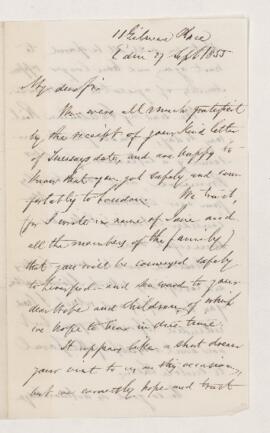 11 Gilmore Place
Edinr 27 Sept 1855
My dear Sir
We were all much gratified
by the receipt of your kind letter
of Tuesdays date, and are happy to
know that you got safely and com-
fortably to London. We trust,
(for I write in name of Jane and
all the members of the family)
that you will be conveyed safely
to and onward to your
dear Wife and children, of which
we hope to hear in due time.
It appears like a short dream
your visit to us on this occasion,
but we earnestly hope and trust